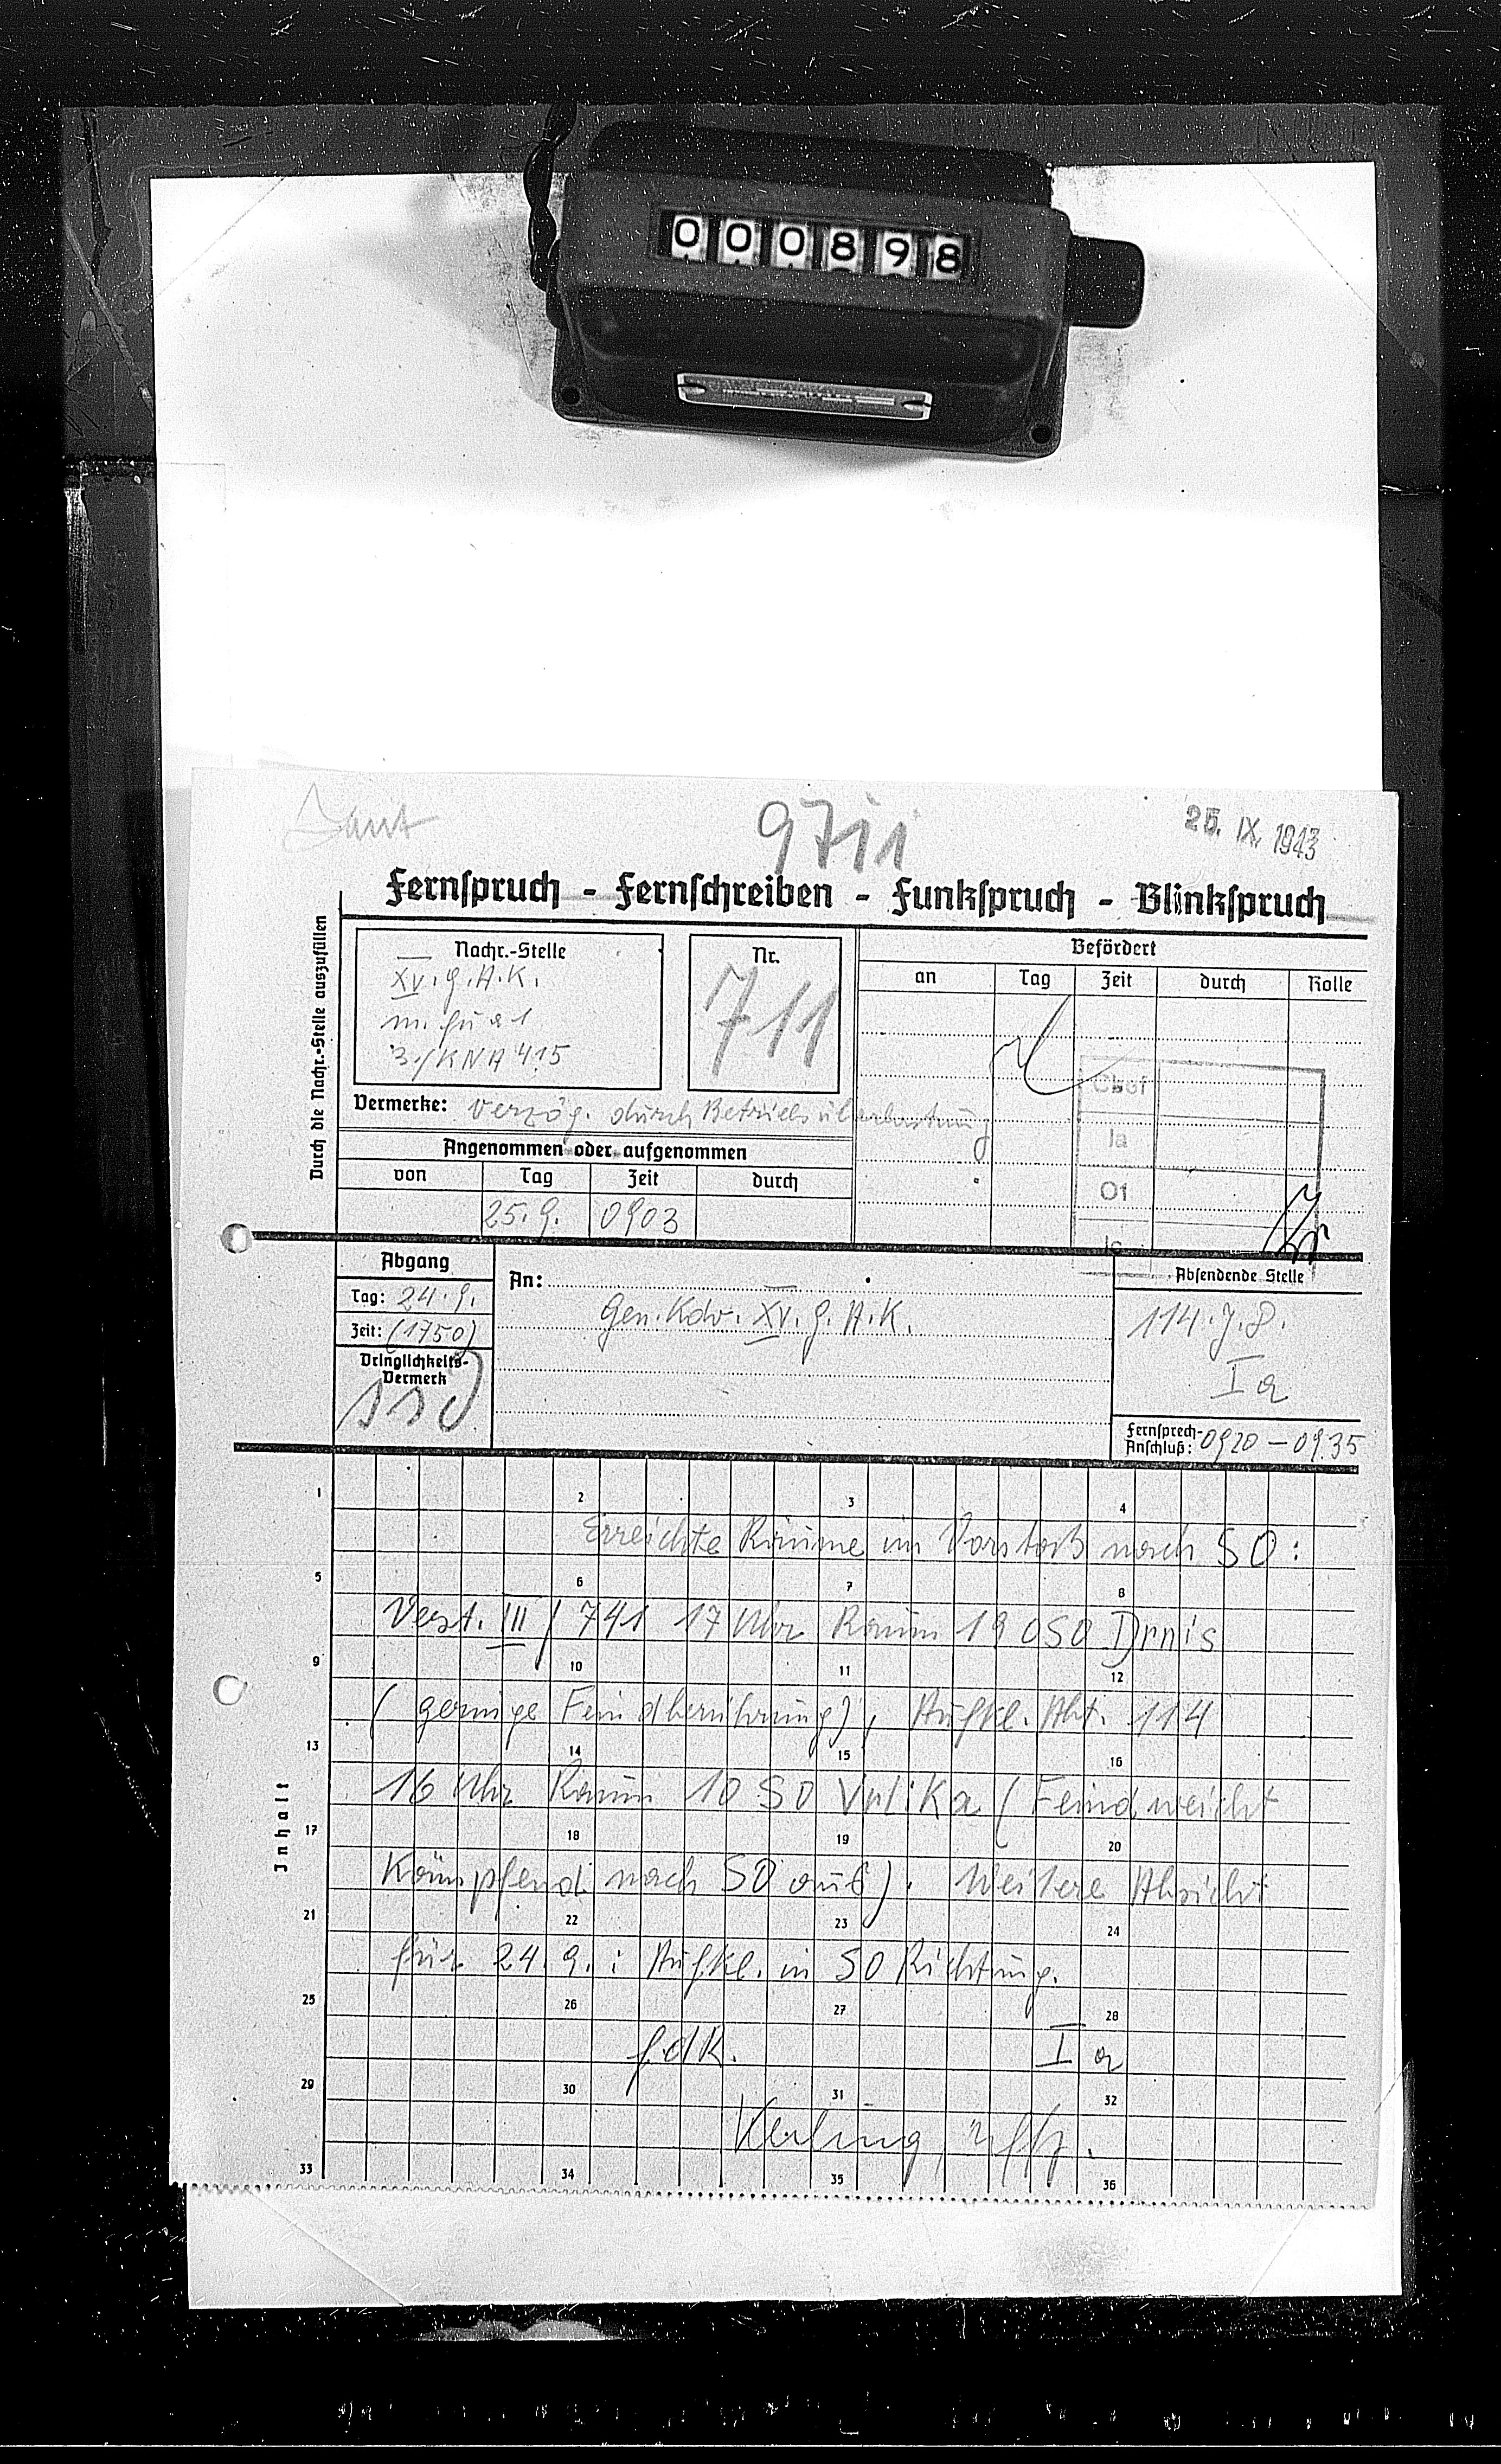 000898
9711
25. IX. 1943
Fernspruch - Fernschreiben - Funkspruch - Blinkspruch
Durch die Nachr.-Stelle auszufüllen
Nachr.-Stelle
XV. G.A.K.
3./KNA 415
Nr.
711
Befördert
an Tag Zeit durch Rolle
Vermerke: verzög. durch Betriebsüberlastung
Chef
Ia
O1
Ic
Angenommen oder aufgenommen
von Tag Zeit durch
25.9. 0903
Abgang
Tag: 24.9.
Zeit: (1750)
Dringlichkeits-
Vermerk
SSD
An:
Gen. Kdo. XV. G.A.K.
Absendende Stelle
114. J.D.
Ia
Fernsprech-
Anschluß: 0920 - 0935
Inhalt
1 2 3 4
Erreichte Räume im Vorstoß nach SO:
5 6 7 8
Verst. III / 741 17 Uhr Raum 19 OSO Drnis
9 10 11 12
(geringe Feindberührung), Aufkl. Abt. 114
13 14 15 16
16 Uhr Raum 10 SO Vrlika (Feind weicht
17 18 19 20
kämpfend nach SO aus). Weitere Absicht
21 22 23 24
für 24.9.: Aufkl. in SO Richtung.
25 26 27 28
f.d.R. Ia
29 30 31 32
Uffz.
33 34 35 36